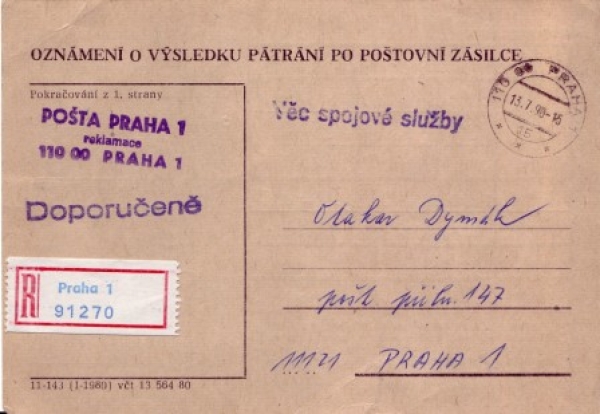 OZNÁMENÍ O VÝSLEDKU PÁTRÁNÍ PO POŠTOVNÍ ZÁSILCE
Pokračování z 1. strany
POŠTA PRAHA 1
reklamace
110 00 PRAHA 1
Věc spojové služby
PRAHA 1
13.7.90-16
Doporučeně
Otakar Dymák
R
Praha 1
91270
pošt. přihr. 147
111 21 PRAHA 1
11-143 (I-1980) včt 13 564 80